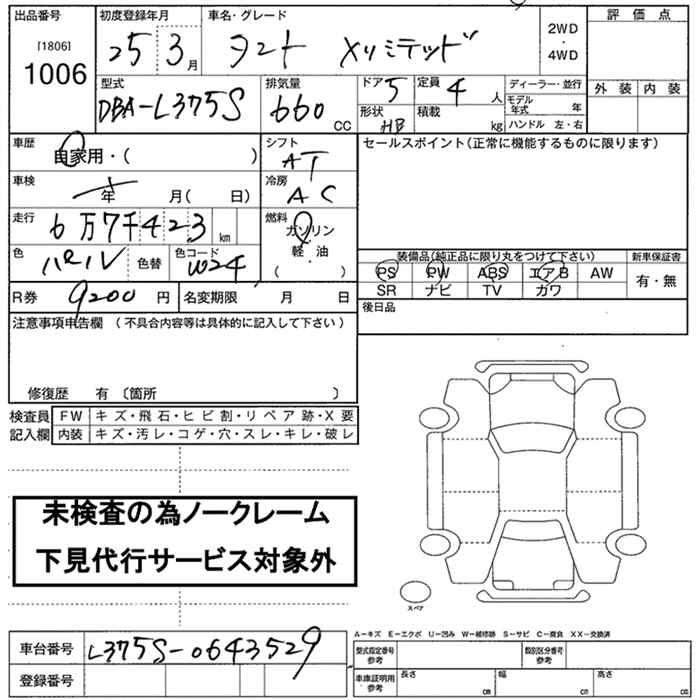 出品番号 初度登録年月 車名・グレード 評価点
[1806] 1006 25 3月 タント Xリミテッド 2WD・4WD
外装 内装
型式 排気量 ドア 5 定員 4人 ディーラー・並行
DBA-L375S 660 CC 形状 HB 積載 kg モデル年式 年
ハンドル 左・右
車歴 自家用・( ) シフト AT セールスポイント(正常に機能するものに限ります)
車検 年 月( 日) 冷房 AC
走行 6万7千423km 燃料 ガソリン
軽・油
( )
色 パール 色替 色コード W24
装備品(純正品に限り丸をつけて下さい) 新車保証書
PS PW ABS エアB AW 有・無
SR ナビ TV カワ
R券 9200円 名変期限 月 日 後日品
注意事項申告欄 (不具合内容等は具体的に記入して下さい)
修復歴 有 〔箇所 〕
検査員記入欄 FW キズ・飛石・ヒビ割・リペア跡・X要
内装 キズ・汚レ・コゲ・穴・スレ・キレ・破レ
未検査の為ノークレーム
下見代行サービス対象外
スペア
A-キズ E-エクボ U-凹み W-補修跡 S-サビ C-腐食 XX-交換済
車台番号 L375S-0643529 型式指定番号参考 類別区分番号参考
登録番号 車庫証明用参考 長さ cm 幅 cm 高さ cm